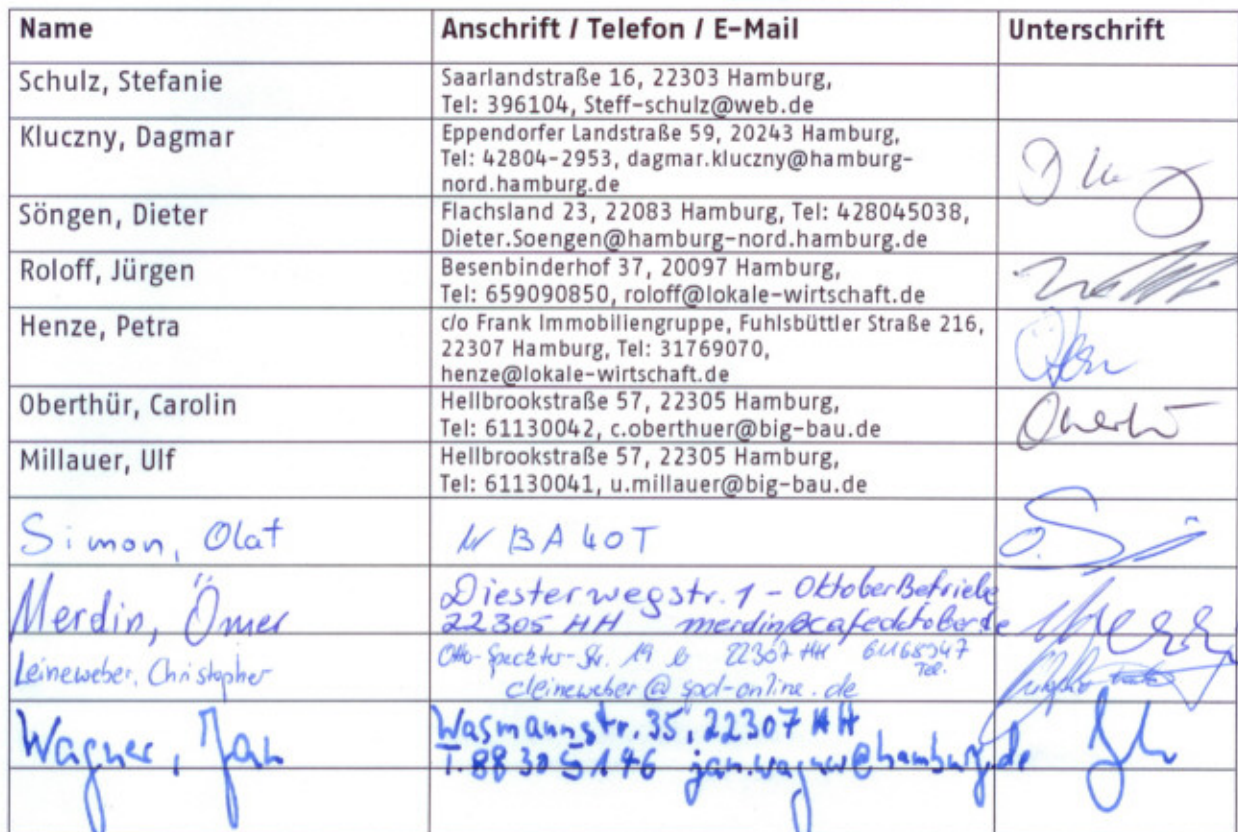 Name Anschrift / Telefon / E-Mail Unterschrift
Schulz, Stefanie Saarlandstraße 16, 22303 Hamburg,
Tel: 396104, Steff-schulz@web.de
Kluczny, Dagmar Eppendorfer Landstraße 59, 20243 Hamburg,
Tel: 42804-2953, dagmar.kluczny@hamburg-
nord.hamburg.de
Söngen, Dieter Flachsland 23, 22083 Hamburg, Tel: 428045038,
Dieter.Soengen@hamburg-nord.hamburg.de
Roloff, Jürgen Besenbinderhof 37, 20097 Hamburg,
Tel: 659090850, roloff@lokale-wirtschaft.de
Henze, Petra c/o Frank Immobiliengruppe, Fuhlsbüttler Straße 216,
22307 Hamburg, Tel: 31769070,
henze@lokale-wirtschaft.de
Oberthür, Carolin Hellbrookstraße 57, 22305 Hamburg,
Tel: 61130042, c.oberthuer@big-bau.de
Millauer, Ulf Hellbrookstraße 57, 22305 Hamburg,
Tel: 61130041, u.millauer@big-bau.de
Simon, Olaf
Merdin, Ömer Diesterwegstr. 1 - Oktober Betriebe
22305 HH merdin@cafeoktober.de
Leineweber, Christopher Otto-Speckter-Str. 19 b 22307 HH
Tel.
cleineweber@spd-online.de
Wagner, Jan Wasmannstr. 35, 22307 HH
T. 88305146 jan.wagner@hamburg.de